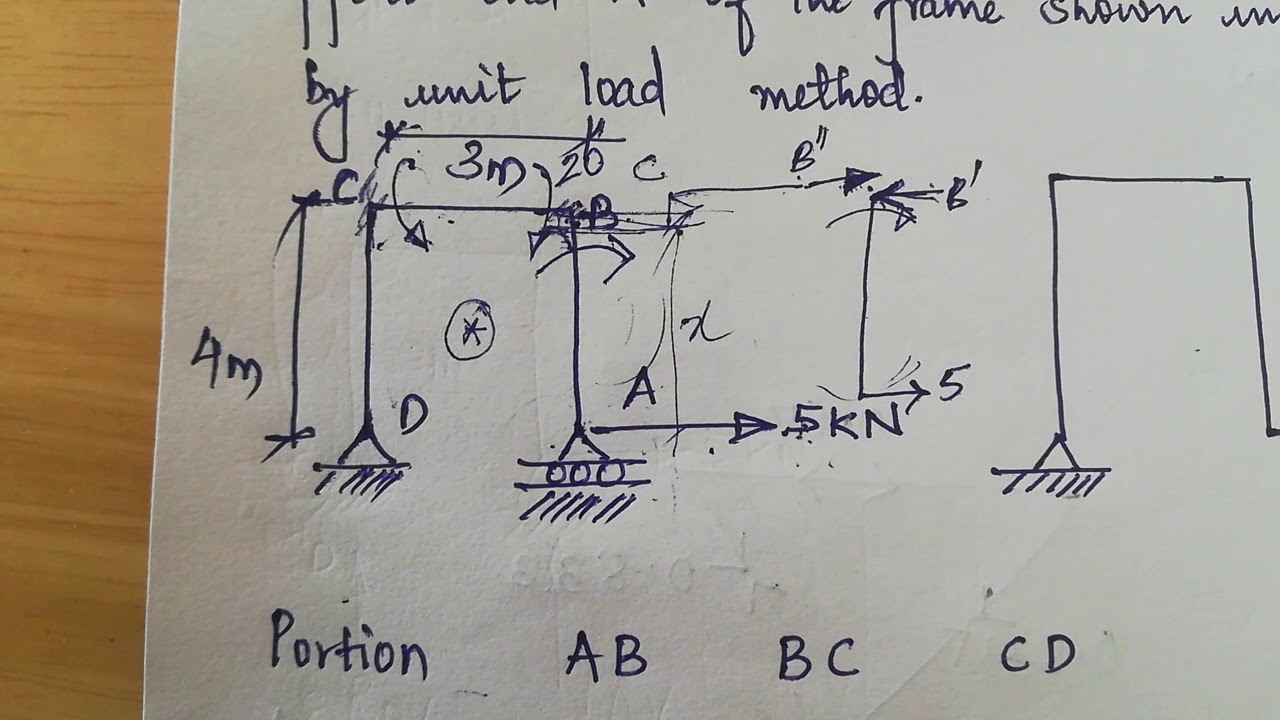 of the frame shown in
by unit load method.
3m 20 C B"
C B B'
4m * x
D A 5KN 5
Portion AB BC CD